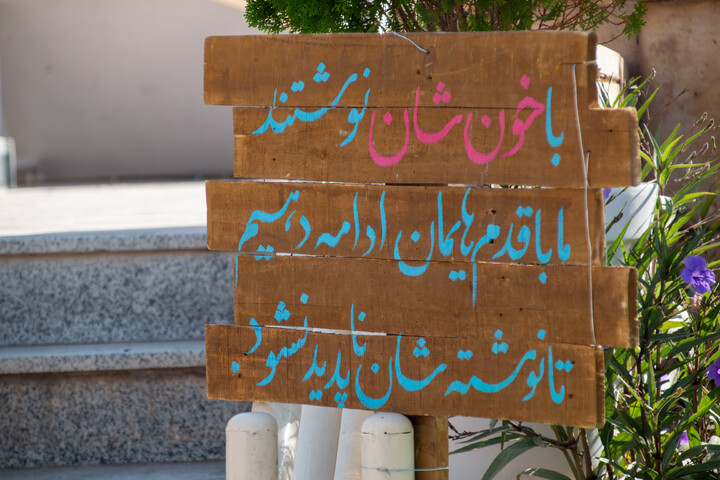 با خون شان نوشتند
ما با قدم هایمان ادامه دهیم
تا نوشته شان ناپدید نشود